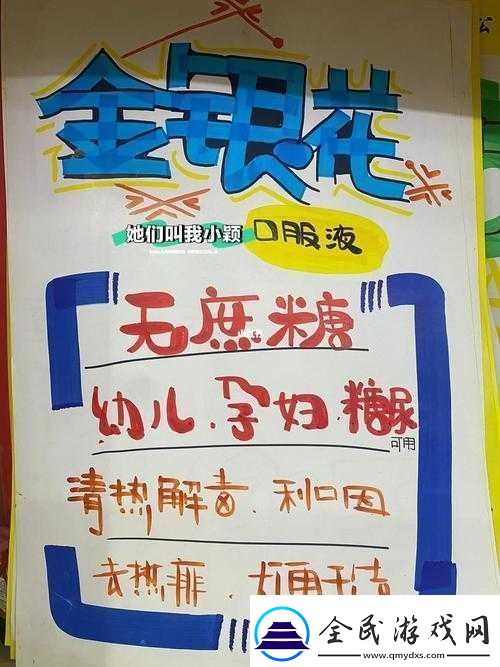 金银花
她们叫我小颖
口服液
无蔗糖
幼儿.孕妇.糖尿
可用
清热解毒.利口因
去热痱.大便干
全民游戏网
www.qmydxs.com